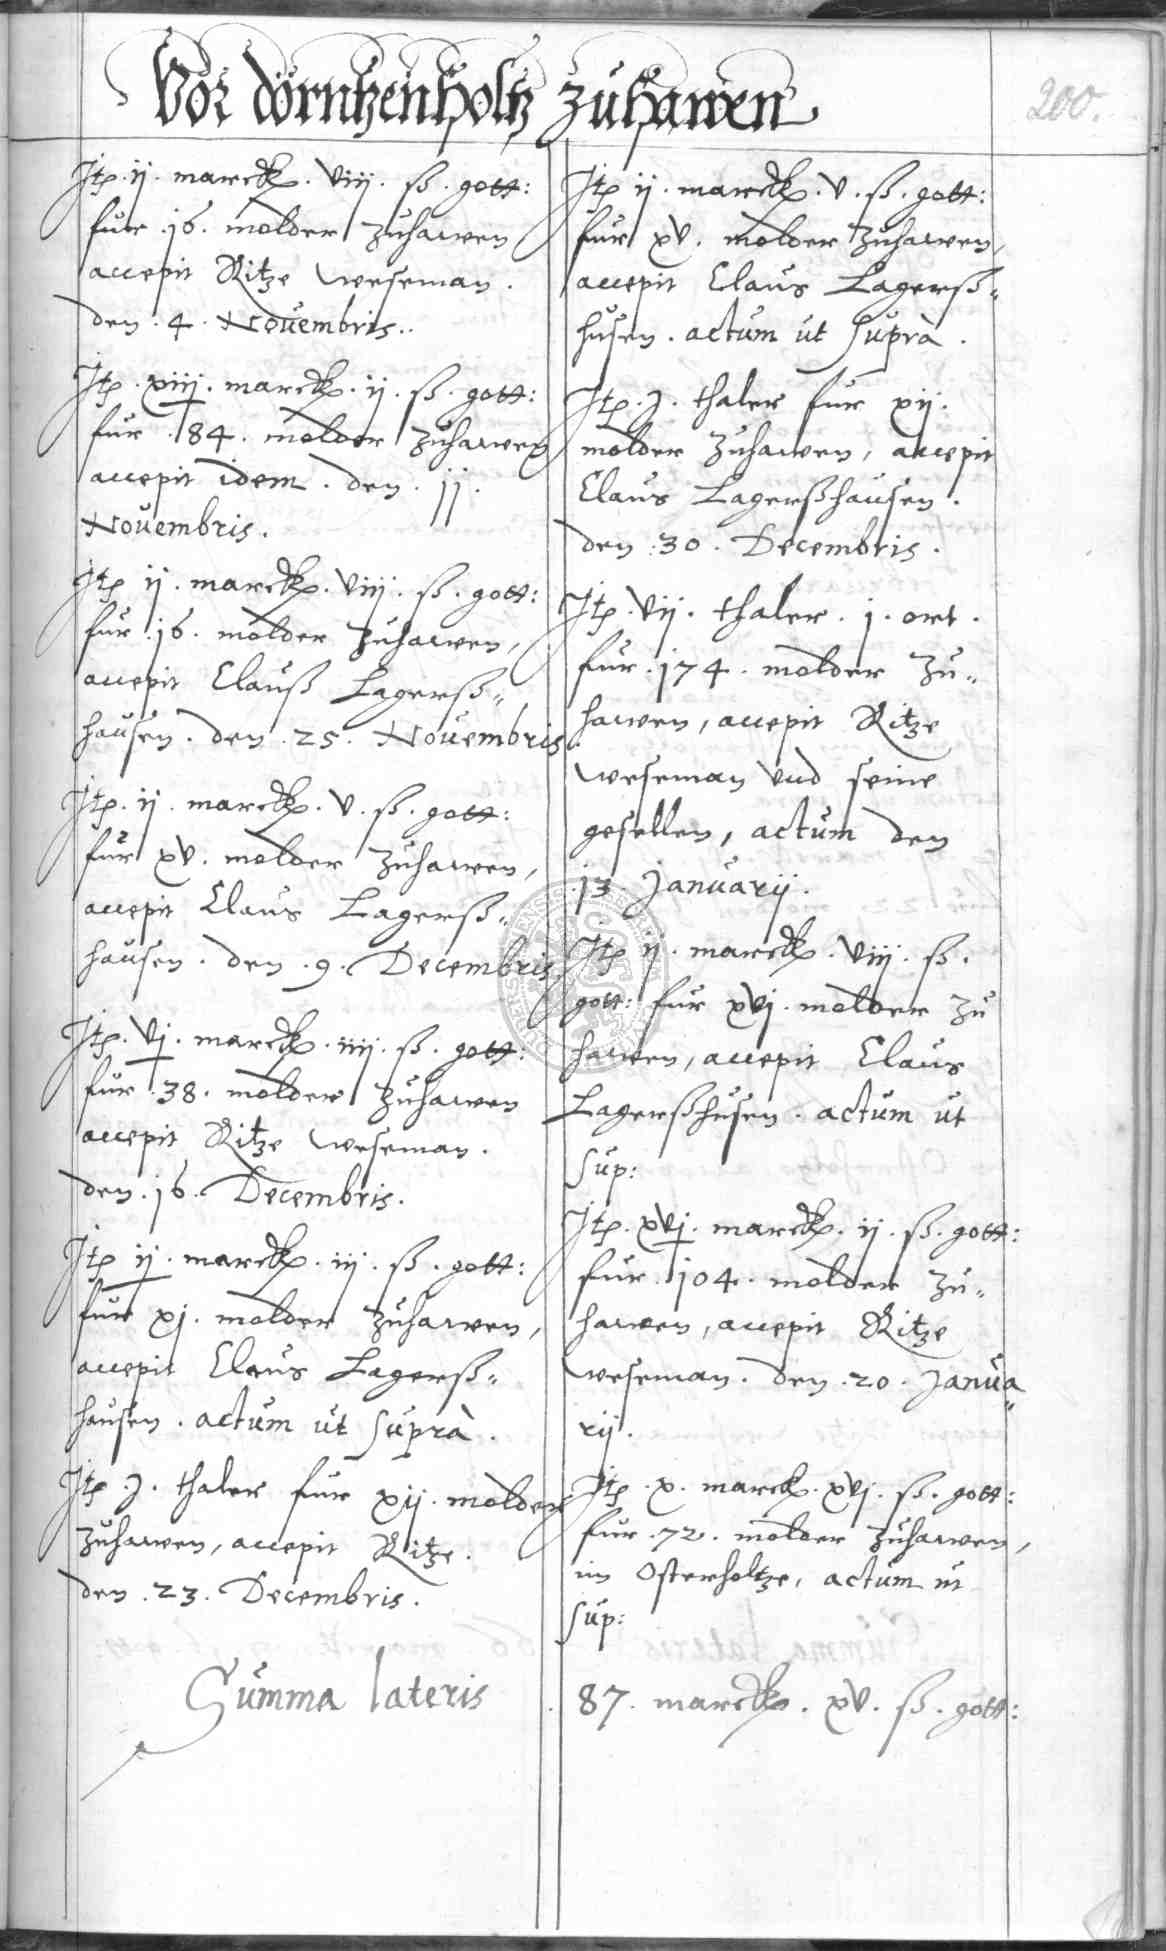 Vor dörntzenholtz zuhawen
200.
Itp. ij. marckp. viij. ß. gott:
fur .16. molder zuhawen
accepit Ritze weseman.
den .4. Novembris..
Itp. xiij. marckp. ij. ß. gott:
fur .84. molder zuhawen
accepit idem. den. 11.
Novembris.
Itp ij. marckp. viij. ß. gott:
fur .16. molder zuhawen,
accepit Clauß Lagerß„
hausen. den .25. Novembris
Itp. ij. marckp. v. ß. gott:
für xv. molder zuhawen,
accepit Claus Lagerß„
hausen. den .9. Decembris
Itp. vj. marckp. iiij. ß. gott:
für .38. molder zuhawen
accepit Ritze weseman.
den .16. Decembris.
Itp ij. marckp. iij. ß. gott:
fur xj. molder zuhawen,
accepit Claus Lagerß„
hausen. actum ut suprà.
Itp. J. thaler fur xij. molder
zuhawen, accepit Ritze.
den .23. Decembris.
Itp ij. marckp. v. ß. gott:
fur xv. molder zuhawen,
accepit Claus Lagerß„
husen. actum ut suprà.
Itp. J. thaler fur xij.
molder zuhawen, accepit
Claus Lagerßhausen.
den .30. Decembris.
Itp. vij. thaler. j. ort.
fur .174. molder zu„
hawen, accepit Ritze
weseman vnd seine
gesellen, actum den
.13. Januarij.
Itp ij. marckp. viij. ß.
gott: fur xvj. molder zu
hawen, accepit Claus
Lagerßhusen. actum ut
sup:
Itp. xvj. marckp. ij. ß. gott:
fur .104. molder zu„
hawen, accepit Ritze
weseman. den .20. Janua„
rij.
Itp. x. marckp. xvj. ß. gott:
fur .72. molder zuhawen,
im Osterholtze, actum ut
sup:
Summa lateris . 87. marckp. xv. ß. gott: